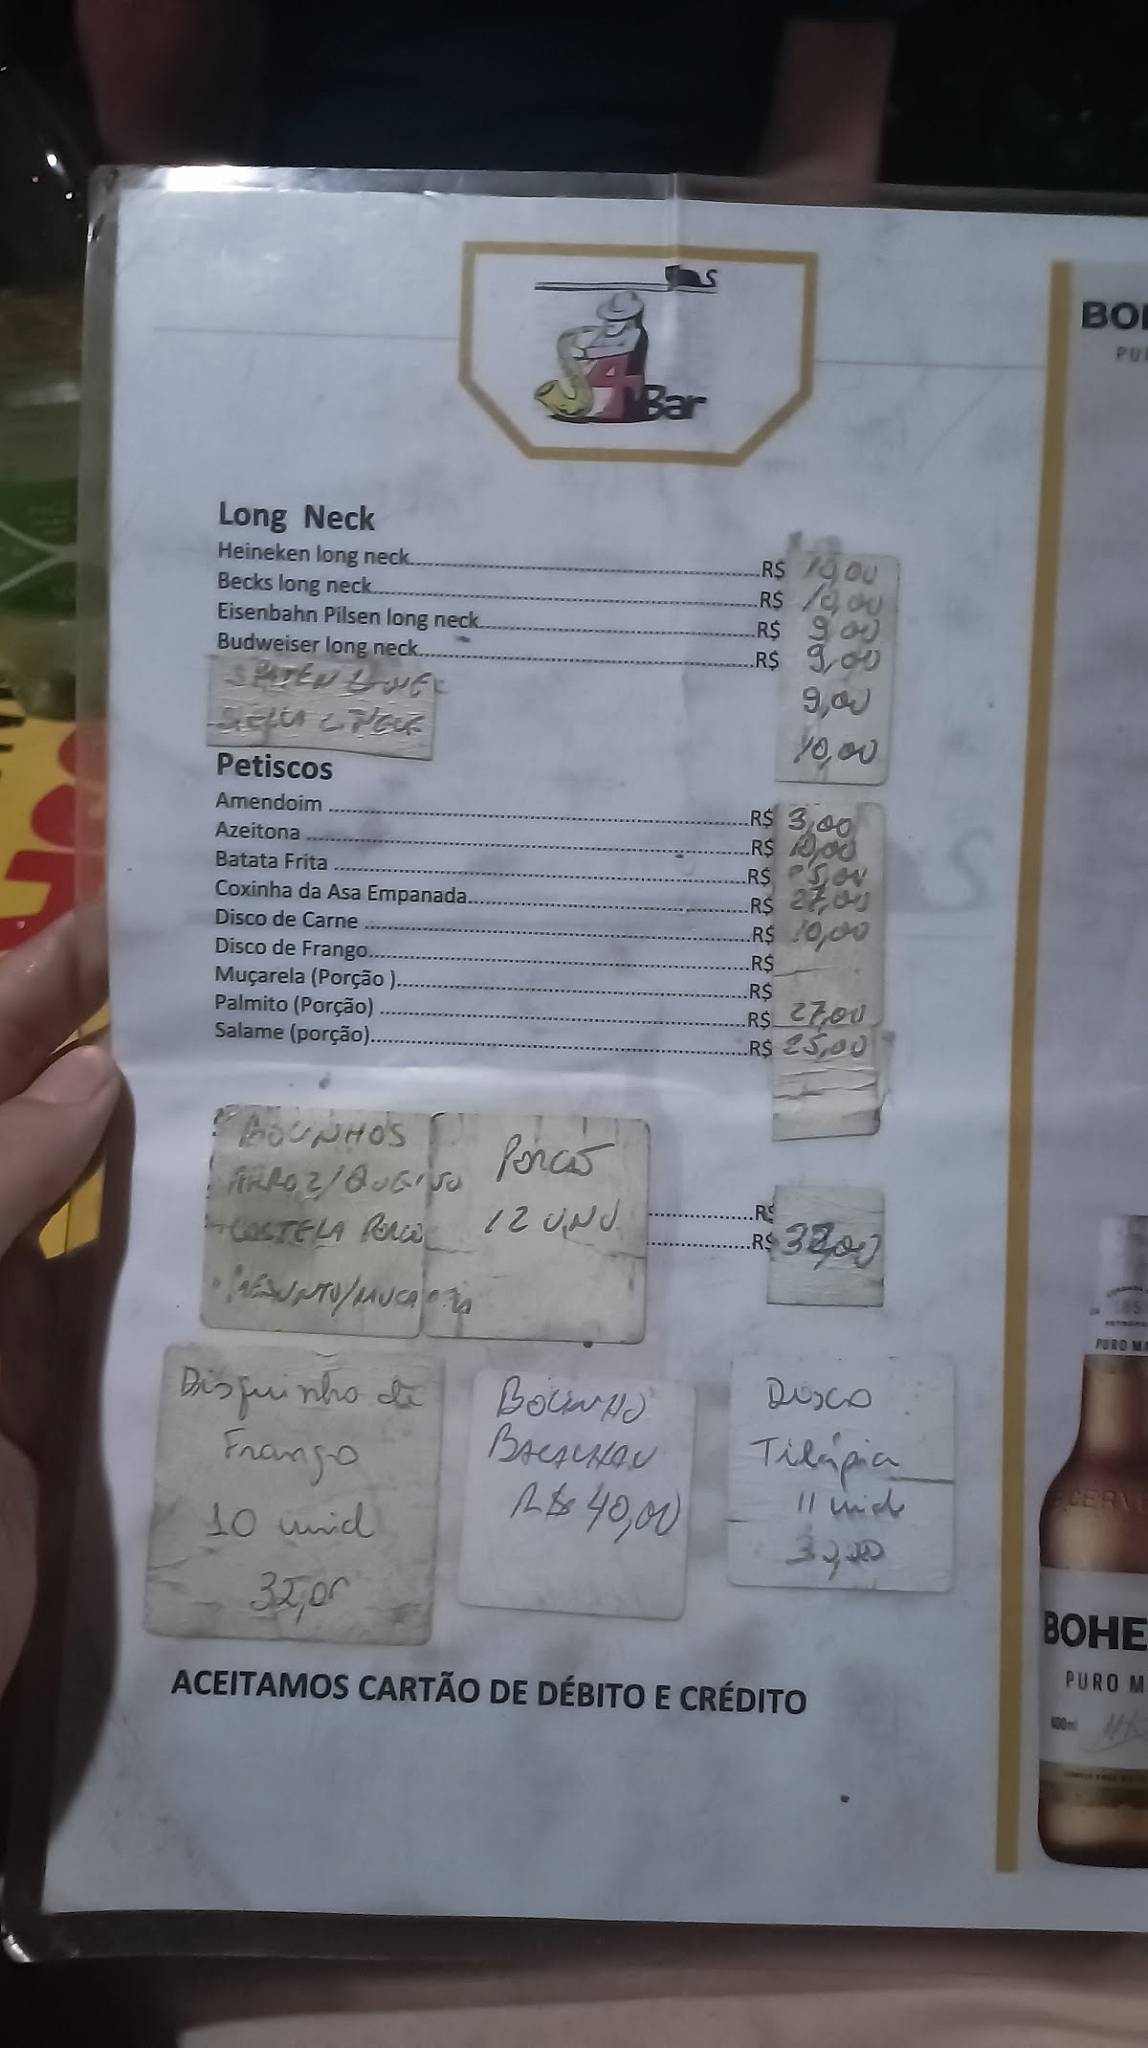 4Bar
Long Neck
Heineken long neck R$ 10,00
Becks long neck R$ 10,00
Eisenbahn Pilsen long neck R$ 9,00
Budweiser long neck R$ 9,00
9,00
10,00
Petiscos
Amendoim R$ 3,00
Azeitona R$ 10,00
Batata Frita R$
Coxinha da Asa Empanada R$ 27,00
Disco de Carne R$ 10,00
Disco de Frango R$
Muçarela (Porção ) R$
Palmito (Porção) R$ 27,00
Salame (porção) R$ 25,00
ARROZ/QUEIJO
COSTELA PORCO
PRESUNTO/MUÇA
Porção
12 UND
R$
R$
Disquinho de
Frango
10 unid
32,00
BOLINHO
BACALHAU
R$ 40,00
Disco
Tilápia
11 unid
ACEITAMOS CARTÃO DE DÉBITO E CRÉDITO
BOHE
PURO M
600ml